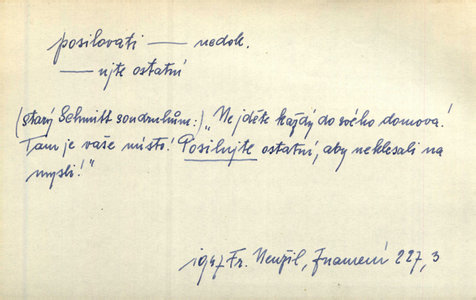 posilovati — nedok.
— ujte ostatní
(starý Schmitt soudruhům:) „Nejděte každý do svého domova!
Tam je vaše místo! Posilujte ostatní, aby neklesali na
mysli!"
1947 Fr. Neužil, Znamení 227,3